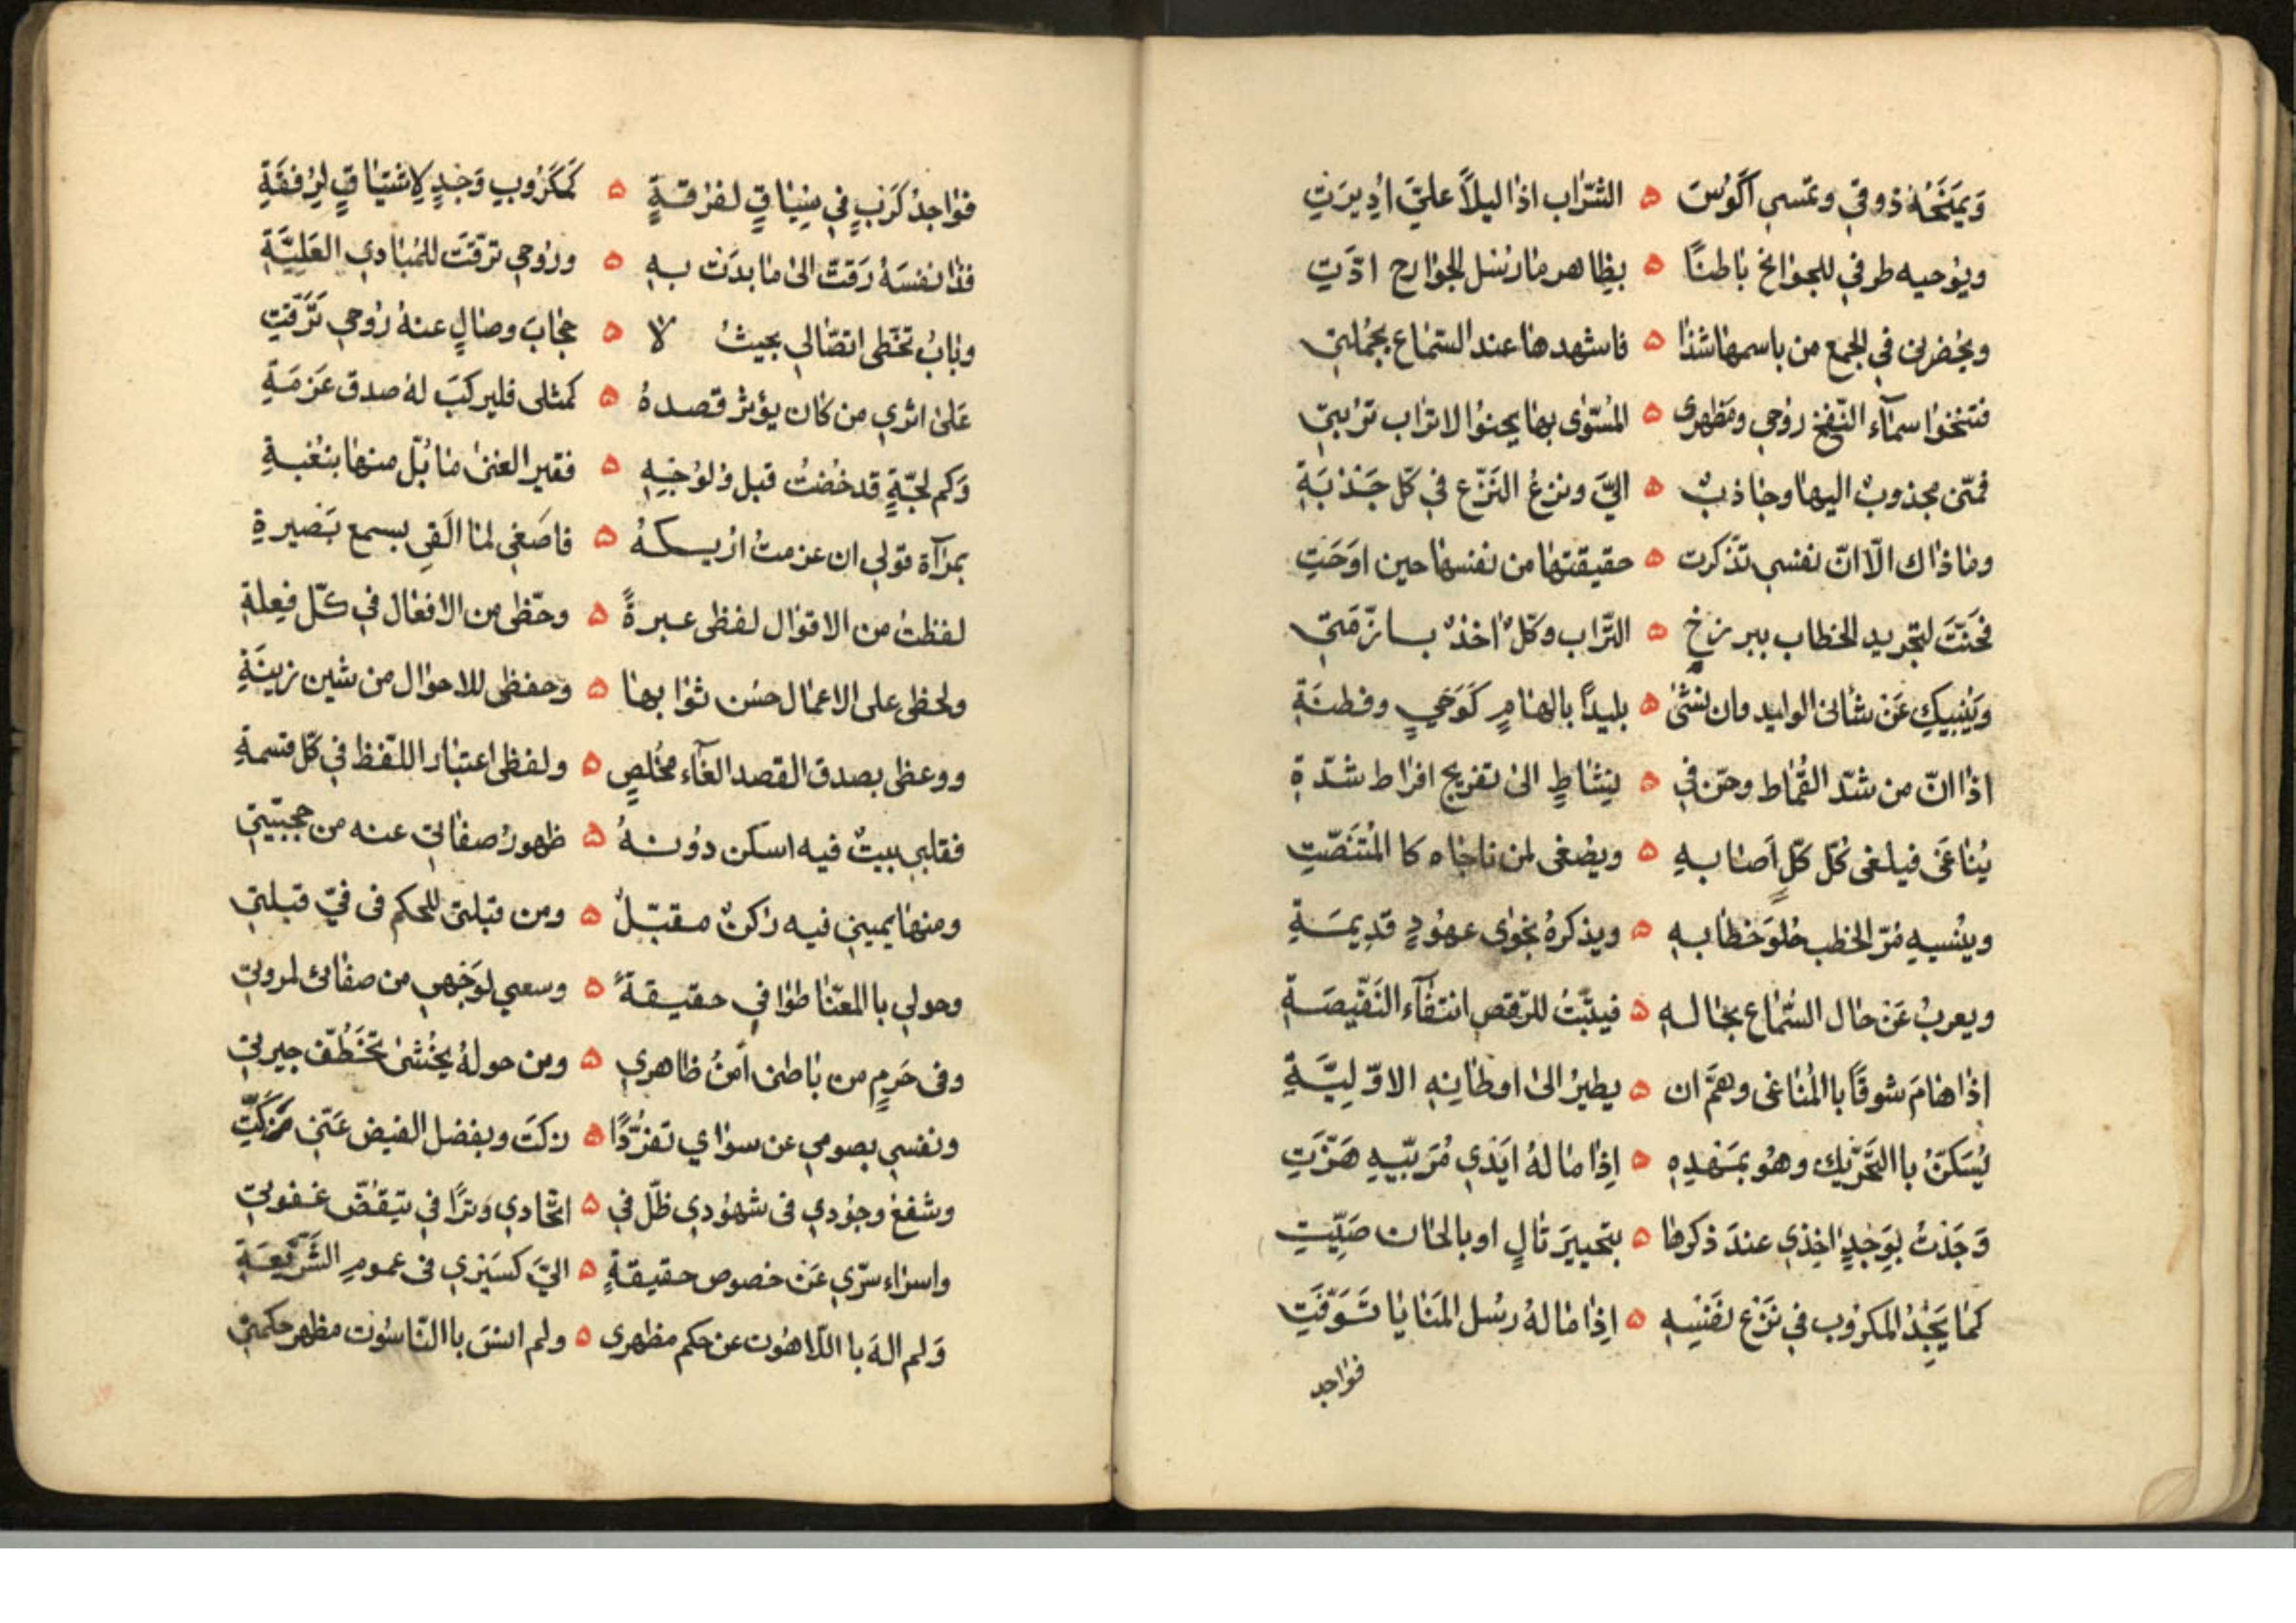 وَيَمْنَحُهُ ذوقي ولمسي اَكؤسَ ه الشّراب اذا ليلاً عليَّ اُدِيرَتِ
ويوحيه طرفي للجوانح باطنًا ه بظاهر ما رسل الجوارح ادّتِ
ويحضرني في الجمع من باسمها شذا ه فاشهدها عند السّماع بجُملتي
فتنحوا سمآء النّفخ روحي ومظهري ه المُسَوّى بها يحنوا لاتراب تربتي
فمنّى مجذوبٌ اليها وجاذبٌ ه اليَّ ونزعُ النّزع في كلّ جَذْبَةِ
وما ذاك الّا انّ نفسي تذّكرت ه حقيقتها من نفسها حين اوحَتِ
فحَنَّتَ لتجريد الخطاب ببرزخِ ه التّراب وكلٌّ اخذٌ بازمّتي
وَيُنبيكِ عَنْ شأني الوليد وان نشئ ه بليدًا بالهامٍ كَوَحْيٍ وفطنَةِ
اذا انّ من شدّ القُماط وحنّ في ه نِشاطٍ الى تفريج افراط شدّةِ
يُناغَى فيلغى كُلّ كلٍّ اَصابهِ ه ويصْغى لمن ناجاه كالمُتنصّتِ
وينسيهِ مُرّ الخطب حُلوَ خطابهِ ه ويذكرهُ نجوى عهُودٍ قدِيمَةِ
ويعربُ عَنْ حال السّماع بحالهِ ه فيثبّتُ للرّقص انتفآء النّقيصَةِ
اذا هامَ شوقًا باالمُناغى وهمَّ ان ه يطيرُ الى اوطانِهِ الاوّلِيَّةِ
يُسَكنّ باالتّحريك وهُو بمَهْدِهِ ه اِذا ما لهُ ايَدي مُرَبّيهِ هَزّتِ
وَجَدْتُ بوَجْدٍ اخِذي عندَ ذكرها ه بتحبيرَ تالٍ او بالحان صَيِّتِ
كما يَجِدُ المكروب في نَزْع نفسِهِ ه اِذا ما لهُ رسُل المَنايا تَوفّتِ
فواجد
فواجدُ كَربٍ في سِيَاقٍ لفرقةٍ ه كَمَكرُوبِ وَجْدٍ لِاشتياقٍ لِرُفقَةِ
فذا نفسَهُ رَقتّ الى ما بدَت بهِ ه وروحي ترقّت للمبادي العَلِيَّةِ
وبابُ تخطّى اتصّالي بحيثُ لا ه حجابَ وصالٍ عنهُ روحي ترَقّتِ
عَلى اثري من كان يؤثر قصدهُ ه كمثلي فليركبَ لهُ صدق عَزمَةِ
وَكم لجّةٍ قد خُضتُ قبل وُلوُجِهِ ه فقير الغنى ما بُلّ منها بنُغبةِ
بمرآة قولي ان عزمتُ اريكهُ ه فاصَغي لما القي بسمع بَصيرةِ
لفظتُ من الاقوال لفظي عبرةً ه وحظّي من الافعال في كلّ فِعلةِ
ولحظي على الاعمال حسُن ثوابها ه وحفظي للاحوال من شين زينَةِ
ووعظي بصدق القصد الغآء مخُلصٍ ه ولفظي اعتبار اللّفظ في كلّ قسمةِ
فقلبي بيتٌ فيه اسكن دوُنهُ ه ظهورُ صفاتي عنه من حجبيّتي
ومنها يميني فيه ركنٌ مقبّلٌ ه ومن قبلتي للحكم في فيّ قبلتي
وحولي باالمعنا طوافي حقيقةً ه وسعيي لوَجْهي من صفائي لمروتي
وفي حَرمٍ من باطني اَمنُ ظاهري ه ومن حولهُ يُخْشى تَخَطّف جيرتي
ونفسي بصومي عن سواي تفرُّدًا ه زكتَ وبفضل الفيض عَنّي مزَكَّتِ
وشفعُ وجُودي في شهُودي ظلّ في ه اتّحادي وَترًا في تيقُظّ غفوتي
واسراء سرّي عَن خصوص حقيقةٍ ه اليَّ كسَيري في عمومِ الشّريعَةِ
وَلم الهَ باللّاهُوت عن حكم مظهري ه ولم انسَ باالنّاسُوت مظهر حكمتي